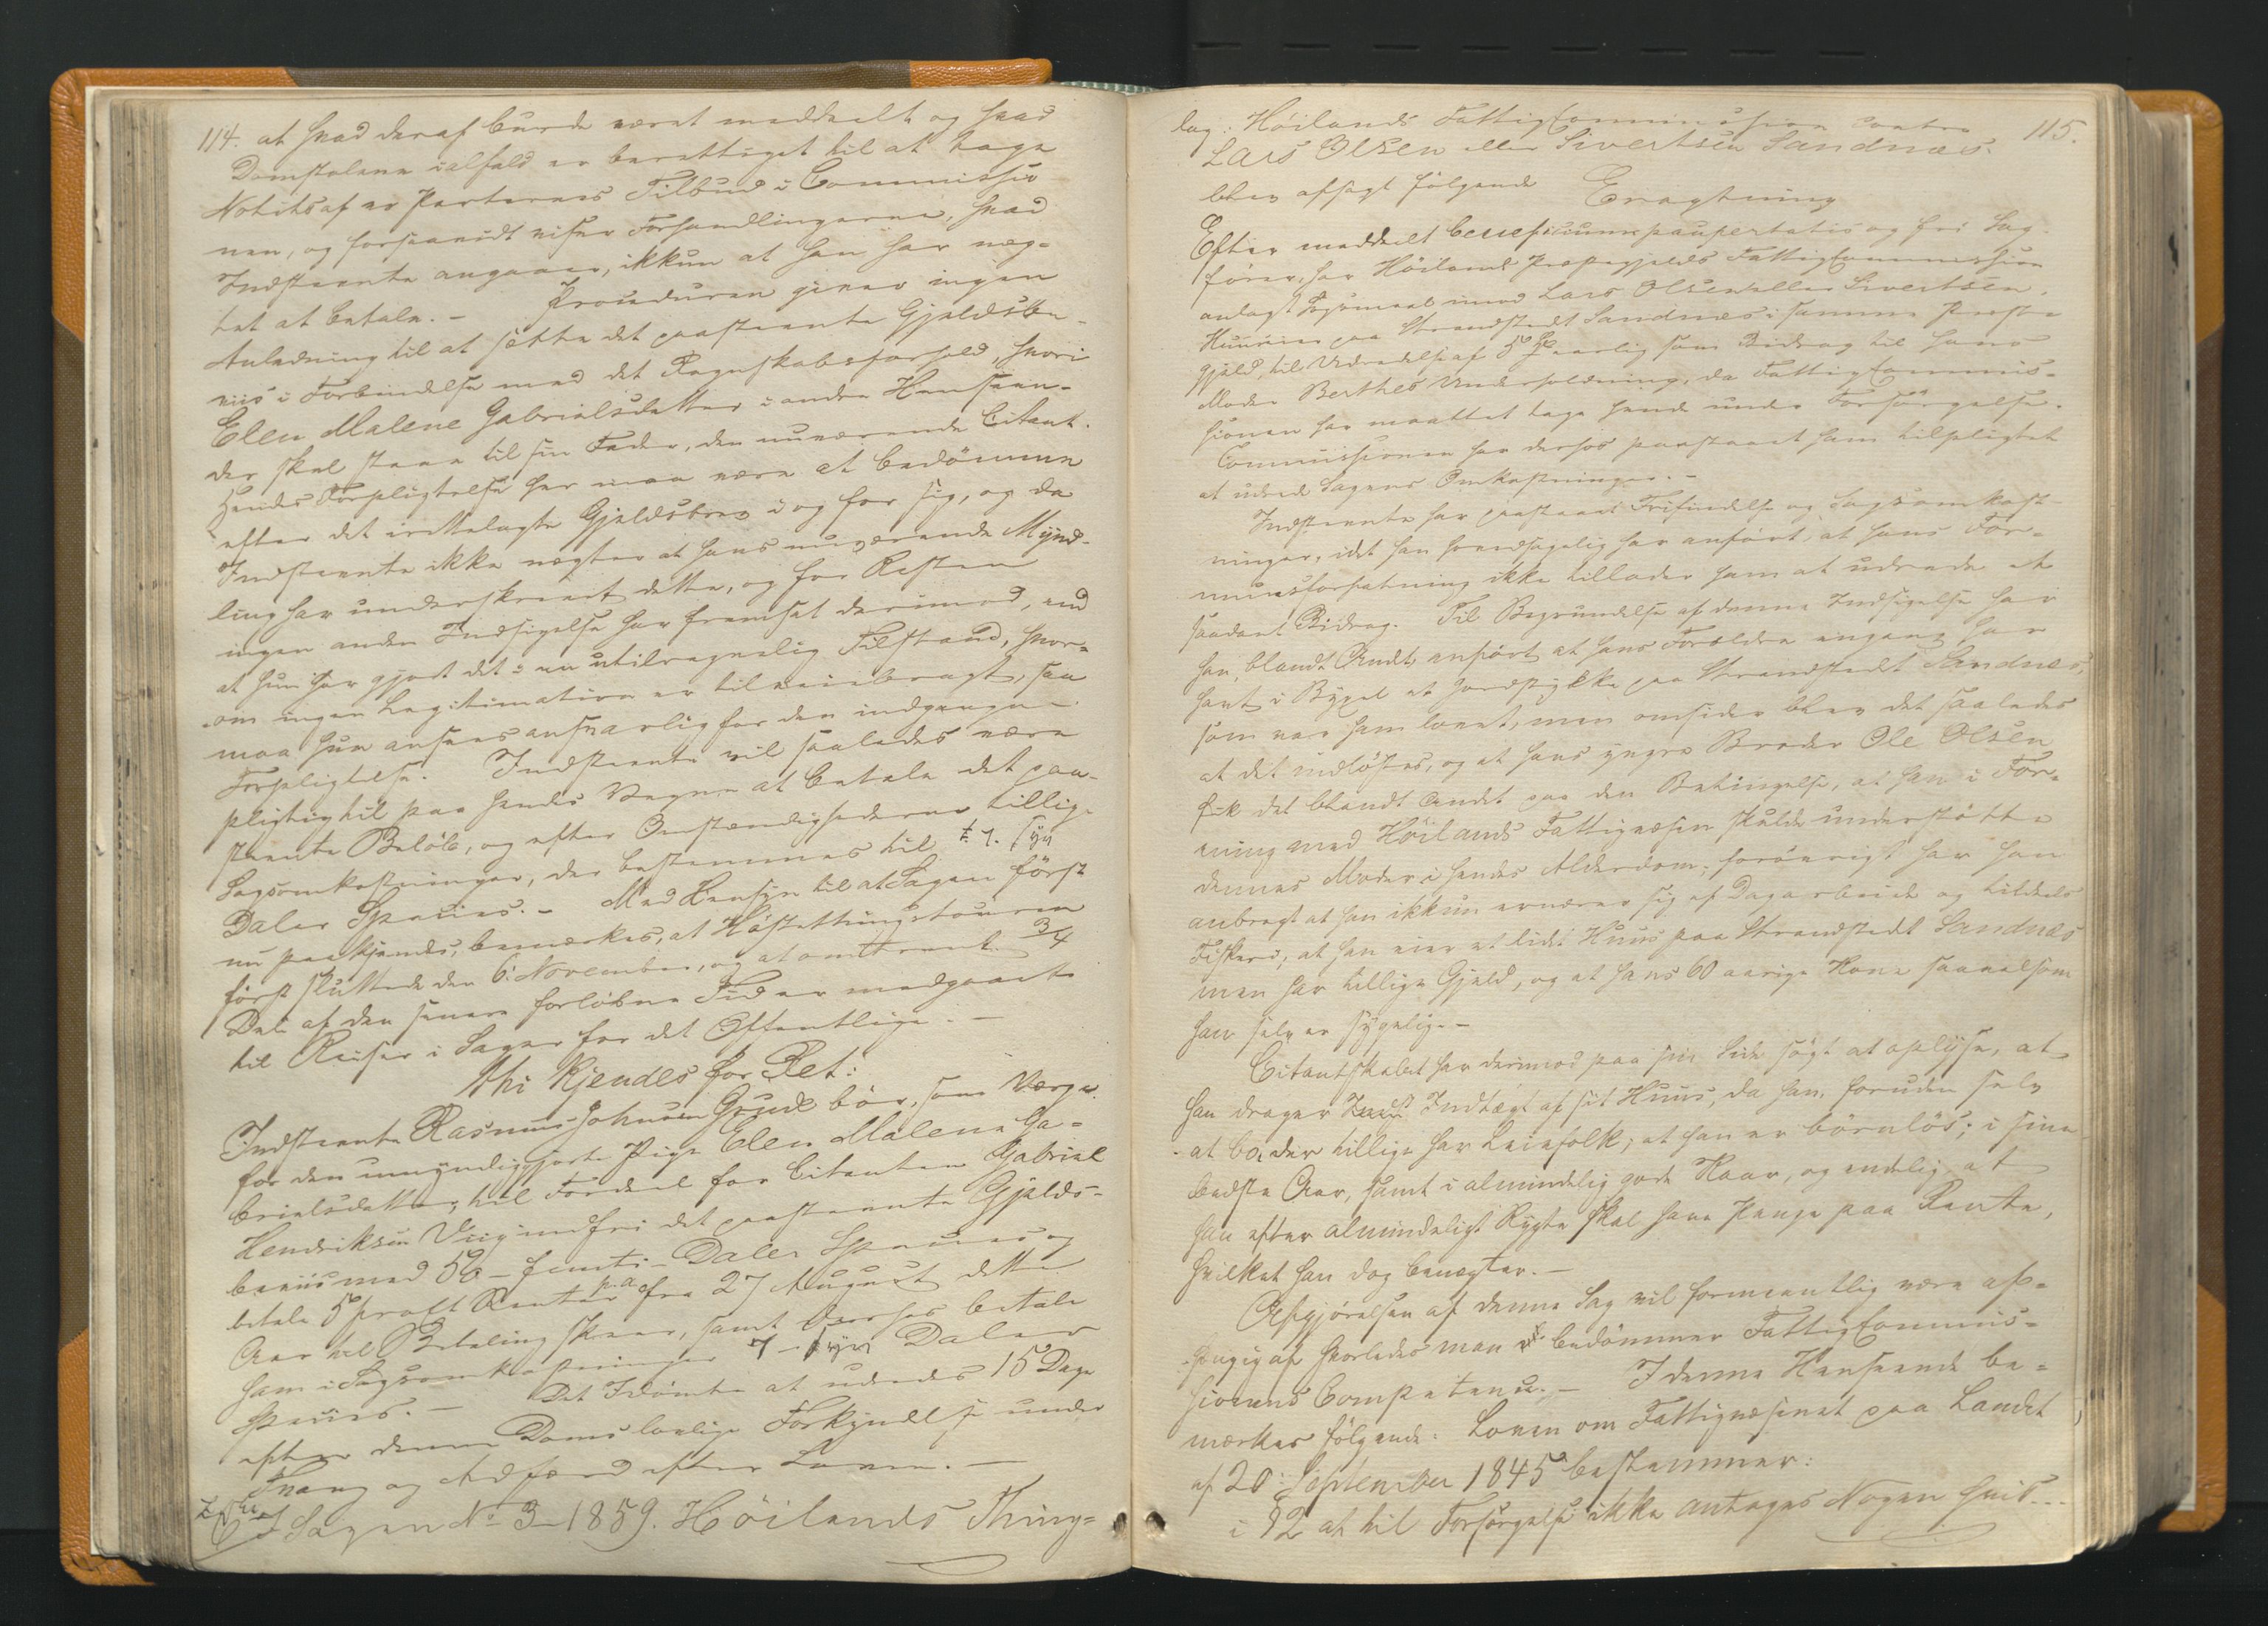 114. at hvad deraf burde været meddeelt og hvad
Domstolene ialfald er berettiget til at tage
Notits af er Parternes Tilbud i Commissio-
nen, og forsaavidt viser Forhandlingerne, hvad
Indstevnte angaaer, ikkun at han har næg-
tet at betale. – Proceduren giver ingen
Anledning til at sætte det paastevnte Gjeldsbe-
viis i Forbindelse med det Regnskabsforhold, hvori
Elen Malene Gabrielsdatter i anden Henseen-
der skal staae til sin Fader, den nuværende Citant.
Hendes Forpligtelse her maa være at bedömme
efter det irettelagte Gjeldsbrev i og for sig, og da
Indstevnte ikke nægter at hans nuværende Mynd-
ling har underskrevet dette, og for Resten
ingen anden Indsigelse har fremsat derimod, end
at hun har gjort det i en utilregnelig Tilstand, hvor-
om ingen Legitimation er tilveiebragt, saa
maa hun ansees ansvarlig for den indgangne
Forpligtelse. Indstevnte vil saaledes være
pligtig til paa hendes Vegne at betale det paa-
stevnte Belöb, og efter Omstændighederne tillige
Sagsomkostninger, der bestemmes til 7. syv
Daler Species. – Med Hensyn til at Sagen först
nu paakjendes, bemærkes, at Höstethingstouren
först sluttede den 6. November, og at omtrent 3/4
Dele af den senere forlöbne Tid er medgaaet
til Reiser i Sager for det Offentlige. –
Thi Kjendes for Ret:
Indstevnte Rasmus Johnsen Grude bör, som Værge
for den umyndiggjorte Pige Elen Malene Ga-
brielsdatter, til Fordeel for Citanten Gabriel
Hendriksen Viig indfri det paastevnte Gjelds-
beviis med 50 – femti – Daler Species og
betale 5 procent Renter p. a. fra 27 August dette
Aar til Betaling skeer, samt derhos betale
ham i Sagsomkostninger 7 – syv Daler
Species. – Det Idömte at udredes 15 Dage
efter denne Doms lovlige Forkyndelse under
Tvang og Adfærd efter Loven. –
I Sagen No 3 – 1859. Höilands Thing-
lag: Höilands Fattigcommission contra 115.
Lars Olsen eller Sivertsen Sandnæs.
blev afsagt fölgende Eragtning
Efter meddeelt beneficium paupertatis og fri Sag-
förer, har Höilands Præstegjelds Fattigcommission
anlagt Sögsmaal imod Lars Olsen eller Sivertsen,
Huuseier paa Strandstedt Sandnæs i samme Præste-
gjeld, til Udredelse af 5 Spd aarlig som Bidrag til hans
Moder Berthes Underholdning, da Fattigcommis-
sionen har maattet tage hende under Forsörgelse.
Commissionen har derhos paastaaet ham tilpligtet
at udrede Sagens Omkostninger. –
Indstevnte har paastaaet Frifindelse og Sagsomkost-
ninger, idet han hovedsagelig har anfört, at hans For-
muesforfatning ikke tillader ham at udrede et
saadant Bidrag. Til Begrundelse af denne Indsigelse har
han, blandt Andet, anfört at hans Forældre engang har
havt i Bÿxel et Jordstykke paa Strandstedt Sandnæs,
som var ham lovet, men omsider blev det saaledes
at det indlöstes, og at hans yngre Broder Ole Olsen
fik det blandt Andet paa den Betingelse, at han i For-
ening med Höilands Fattigvæsen skulde understötte
dennes Moder i hendes Alderdom; forövrigt har han
anbragt at han ikkun ernærer sig af Dagarbeide og tildeels
Fiskeri; at han eier et lidet Huus paa Strandstedt Sandnæs
men har tillige Gjeld, og at hans 60 aarige Kone saavelsom
han selv er sygelig. –
Citantskabet har derimod paa sin Side sögt at oplyse, at
han drager Indtægt af sit Huus, da han, foruden selv
at bo der tillige har Leiefolk; at han er börnlös; i sine
bedste Aar, samt i almindelig gode Kaar, og endelig at
han efter almindeligt Rygte skal have Penge paa Rente,
hvilket han dog benægter. –
Afgjörelsen af denne Sag vil formeentlig være af-
hængig af hvorledes man bedömmer Fattigcommis-
sionens Competence. – I denne Henseende be-
mærkes fölgende: Loven om Fattigvæsenet paa Landet
af 20 September 1845 bestemmer:
i § 2 at til Forsörgelse ikke antages Nogen hvis